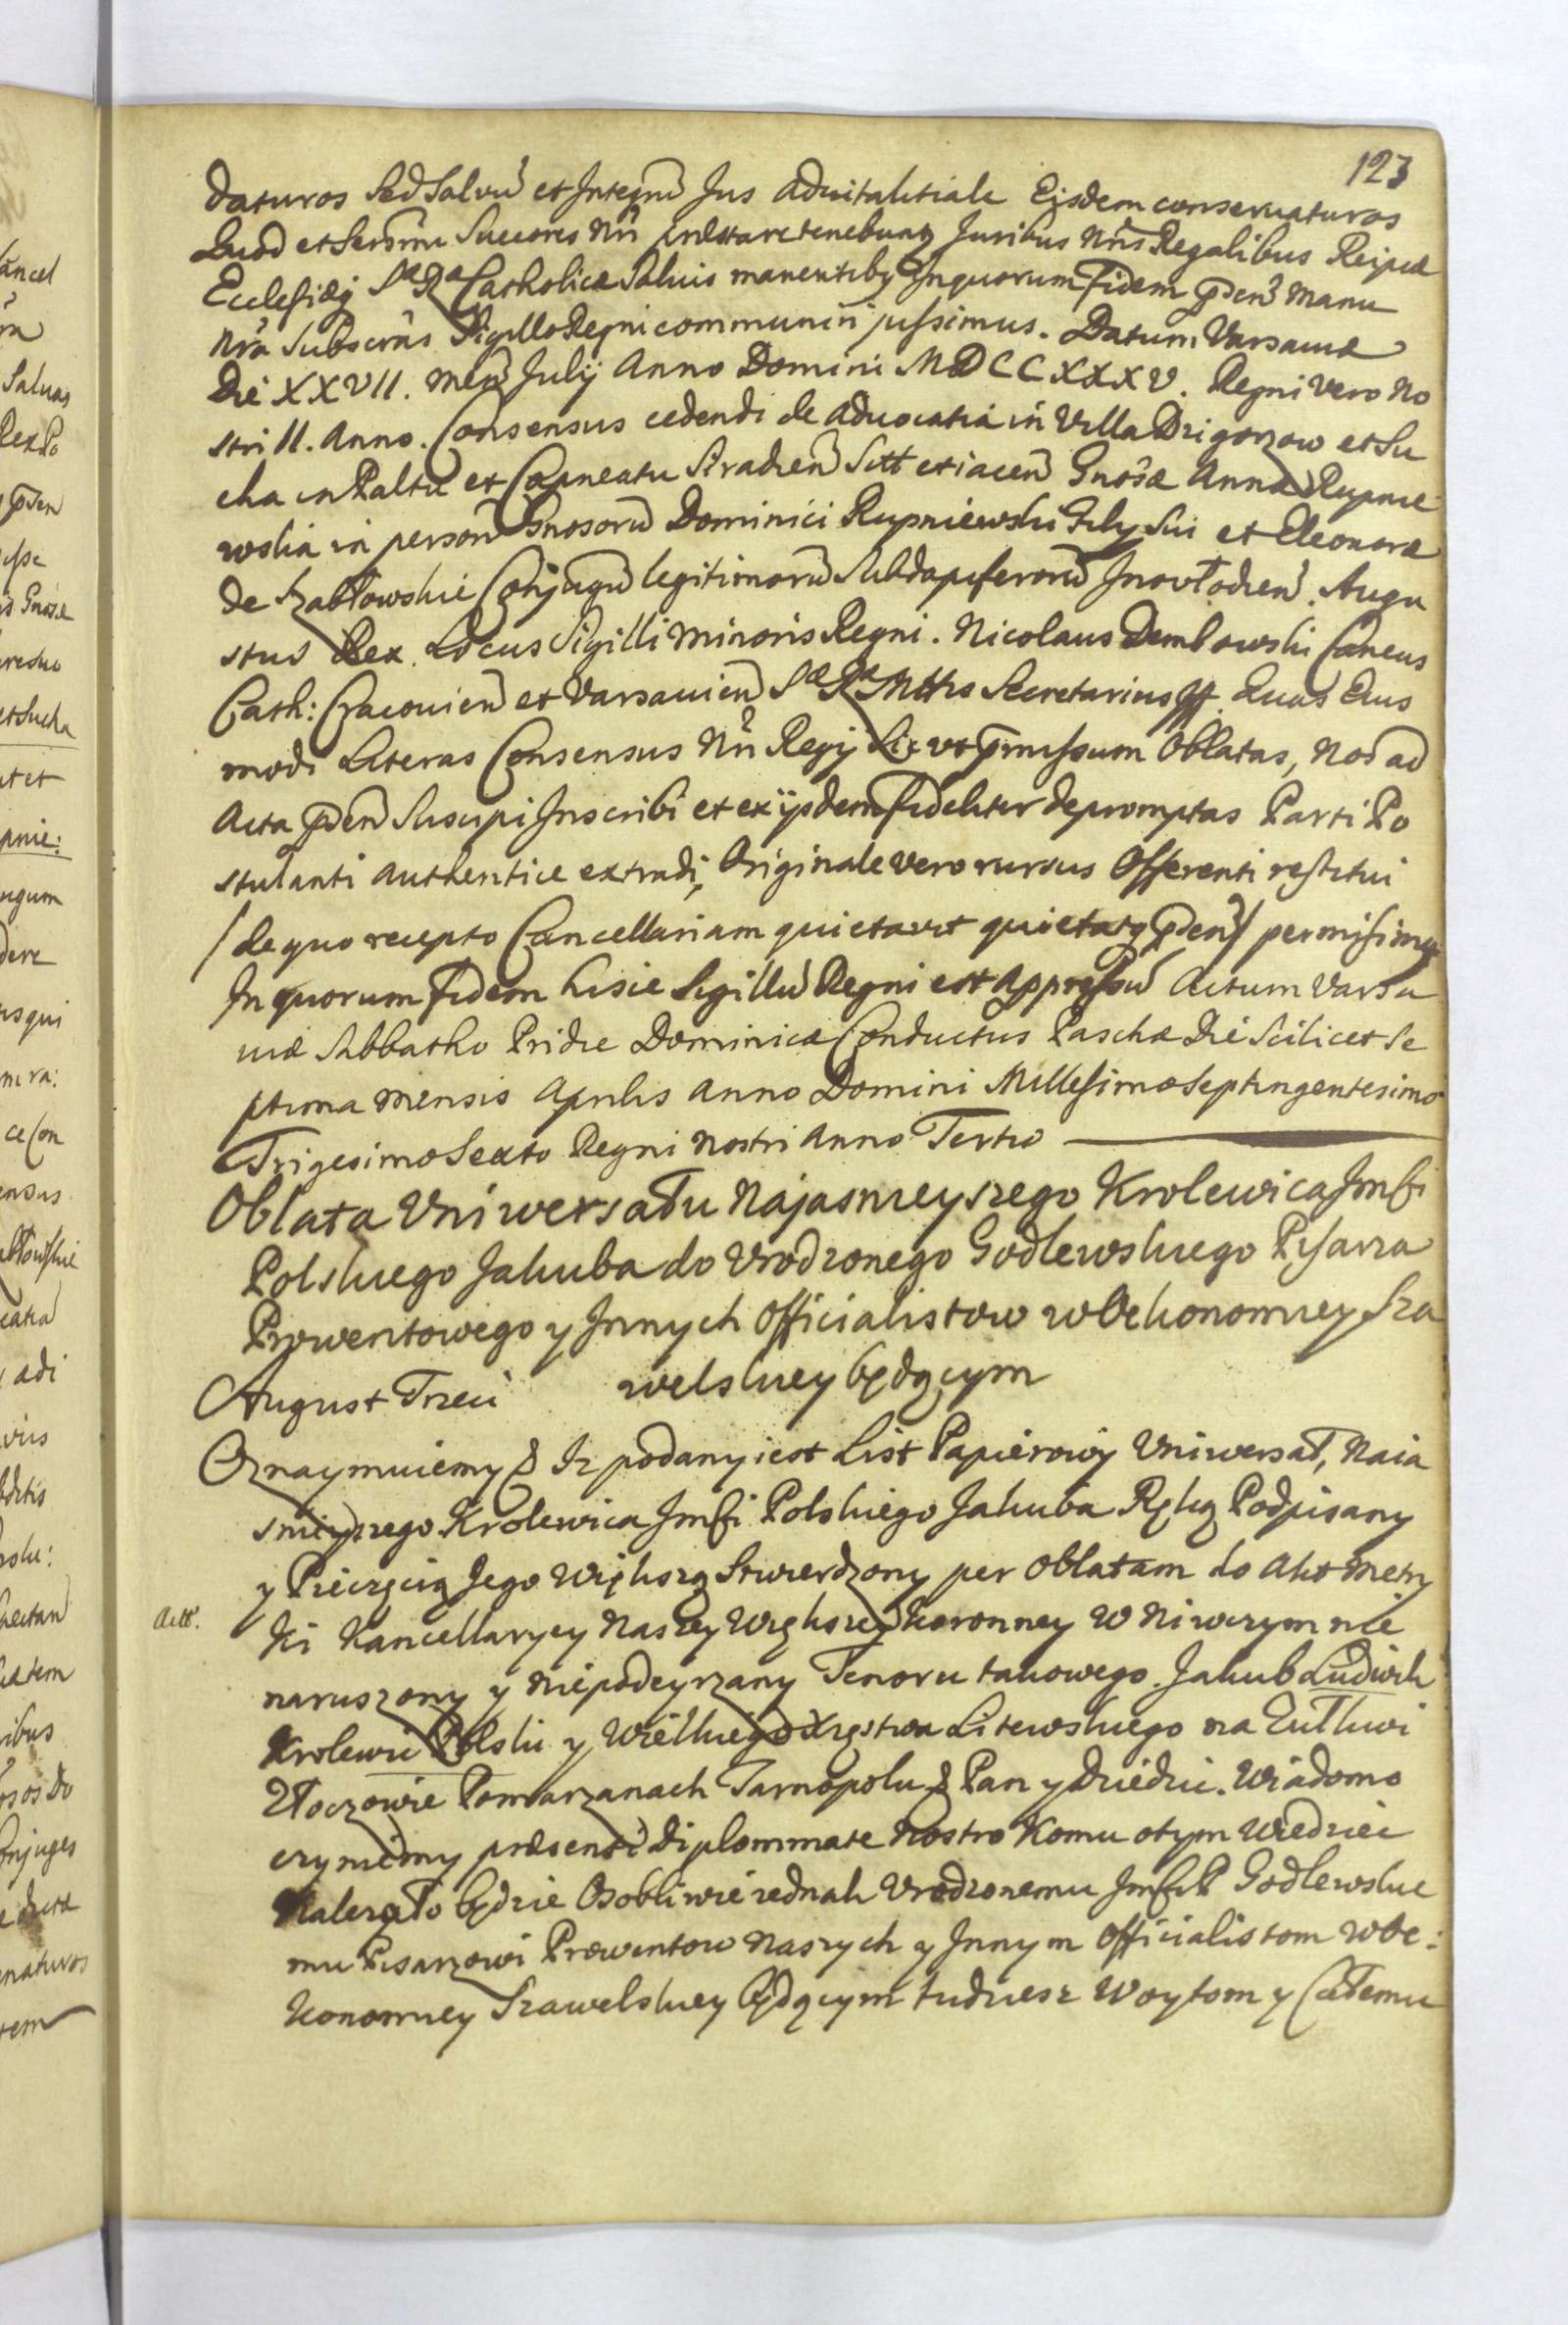 123
daturos Sed Salvũ et Integrũ Jus advitalitiale Eisdem conservaturos
Quod et Serẽnmi Succores Nr̃i præstare tenebunt̃ Juribus Nr̃is Regalibus Reipcæ
Ecclesiæq̃ Sæ Ræ Catholicæ Salvis manentibq̃ In quorum fidem p̃den̄ manu
Nr̃a Subscr̃as Sigillo Regni communir̃i jussimus. Datum Varsaviæ
Die XXVII. mens̃ Julij Anno Domini MDCCXXXV. Regni vero No
stri II. Anno. Consensus cedendi de advocatia in Villa Drigorzow et Su
cha in Paltũ et Capneatu Siradien̄ Sitt et iacen̄ Gnosæ Annæ Rupnie
wska in person̄ Gnosorũ Dominici Rupniewski Filij Sui et Eleonoræ
de Szabłowskie Conjugũ legitimorũ Subdapiferorũ Inovłodien̄. Augu
stus Rex. Locus Sigilli Minoris Regni. Nicolaus Dembowski Cancus
Cath: Cracovien̄ et Varsavien̄ Sæ Ræ Mttis Secretarius Quas Eius
modi Literas Consensus Nr̃i Regij Sic vt p̃missum Oblatas, Nos ad
Acta p̃den̄ Suscipi Inscribi et ex ijsdem fideliter depromptas Parti Po
stulanti authentice extradi, Originale vero rursus Offerenti restitui
/ de quo recepto Cancellariam quietavit quietatq̃ p̃den̄ / permisimq̃
In quorum fidem hisie Sigillũ Regni est appressũ Actum Varsa
viæ Sabbatho Pridie Dominicæ Conductus Paschæ Die Scilicet Se
ptima mensis Aprilis Anno Domini Millesimo Septingentesimo
Trigesimo Sexto Regni Nostri Anno Tertio
Oblata Vniwersału Najasnieyszego Krolewica Jmści
Polskiego Jakuba do Vrodzonego Godlewskiego Pisarza
Prowentowego y Innych Officialistow w Oekonomiey Sza
welskiey będącym
August Trzeci
Oznaymuiemy & Iz podany iest List Papierowy Vniwersał, Naia
snieyszego Krolewica Jmści Polskiego Jakuba Ręką Podpisany
y Pieczęcią Jego Większą Stwierdzony per Oblatam do Akt Metry
Actt.
ki Kancellaryey Naszey Większey Koronney w Niwczym nie
naruszony y niepodeyrzany Tenoru takowego. Jakub Ludwik
Krolewic Polski y Wielkiego Xięstwa Litewskiego na Zułkwi
Złoczowie Pomarzanach Tarnopolu & Pan y Dziedzic. Wiadomo
czyniemy præsenti Diplommate Nostro Komu otym Wiedziec
Nalezało będzie Osobliwie iednak Vrodzonemu Jmści P Godlewskie
mu Pisarzowi Prowentow Naszych y Innym Officialistom w Oe:
konomiey Szawelskiey Będącym tudziesz Woytom y Całemu